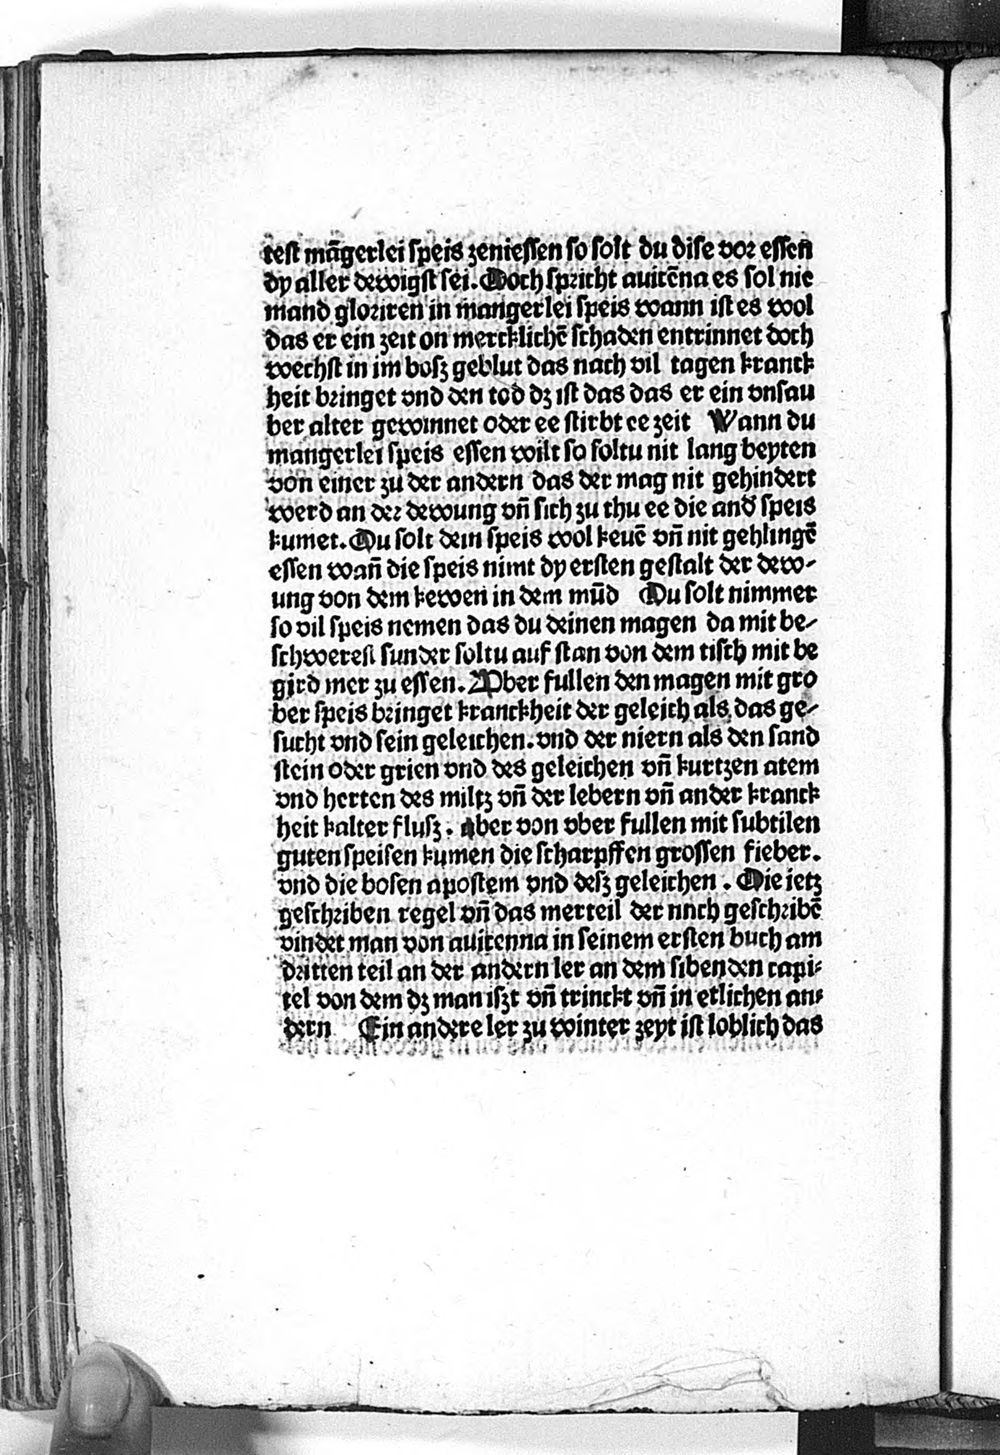 test mãgerlei speis zeniessen so solt du dise vor essen
dy aller dewigst sei. Doch spricht auicẽna es sol nie
mand gloriren in mangerlei speis wann ist es wol
das er ein zeit on mercklichẽ schaden entrinnet doch
wechst in im bosz geblut das nach vil tagen kranck
heit bringet vnd den tod dz ist das das er ein vnsau
ber alter gewinnet oder ee stirbt ee zeit Wann du
mangerlei speis essen wilt so soltu nit lang beyten
von einer zu der andern das der mag nit gehindert
werd an der dewung vñ sich zu thu ee die and̛ speis
kumet. Du solt dein speis wol keuẽ vñ nit gehlingẽ
essen wañ die speis nimt dy ersten gestalt der dew-
ung von dem kewen in dem mũd Du solt nimmer
so vil speis nemen das du deinen magen da mit be-
schwerest sunder soltu auf stan von dem tisch mit be
gird mer zu essen. Vber fullen den magen mit gro
ber speis bringet kranckheit der geleich als das ge-
sucht vnd sein geleichen. vnd der niern als den sand
stein oder grien vnd des geleichen vñ kurtzen atem
vnd herten des miltz vñ der lebern vñ ander kranck
heit kalter flusz. aber von vber fullen mit subtilen
guten speisen kumen die scharpffen grossen fieber.
vnd die bosen apostem vnd desz geleichen. Die ietz
geschriben regel vñ das merteil der nnch geschribẽ
vindet man von auicenna in seinem ersten buch am
dritten teil an der andern ler an dem sibenden capi-
tel von dem dz man iszt vñ trinckt vñ in etlichen an-
dern Ein andere ler zu winter zeyt ist loblich das